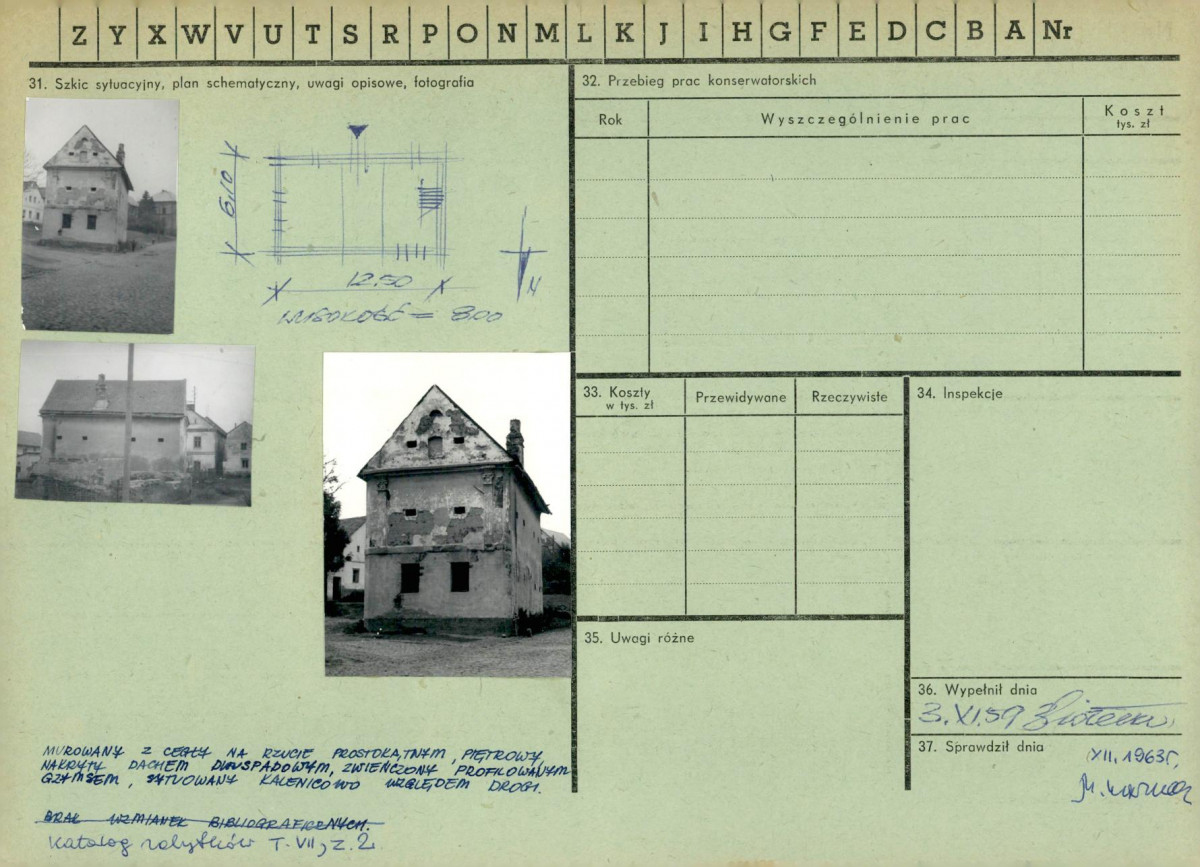 Z Y X W V U T S R P O N M L K J I H G F E D C B A Nr
31. Szkic sytuacyjny, plan schematyczny, uwagi opisowe, fotografia
6,10
12.50
N
WYSOKOŚĆ = 8,00
MUROWANY Z CEGŁY NA RZUCIE PROSTOKĄTNYM, PIĘTROWY,
NAKRYTY DACHEM DWUSPADOWYM, ZWIEŃCZONY PROFILOWANYM
GZYMSEM, SYTUOWANY KALENICOWO WZGLĘDEM DROGI.
BRAK WZMIANEK BIBLIOGRAFICZNYCH.
Katalog zabytków T. VII, z. 2
32. Przebieg prac konserwatorskich
Rok Wyszczególnienie prac Koszt
tys. zł
33. Koszty
w tys. zł
Przewidywane Rzeczywiste
34. Inspekcje
35. Uwagi różne
36. Wypełnił dnia
3.XI.59
37. Sprawdził dnia
XII. 1963 r.